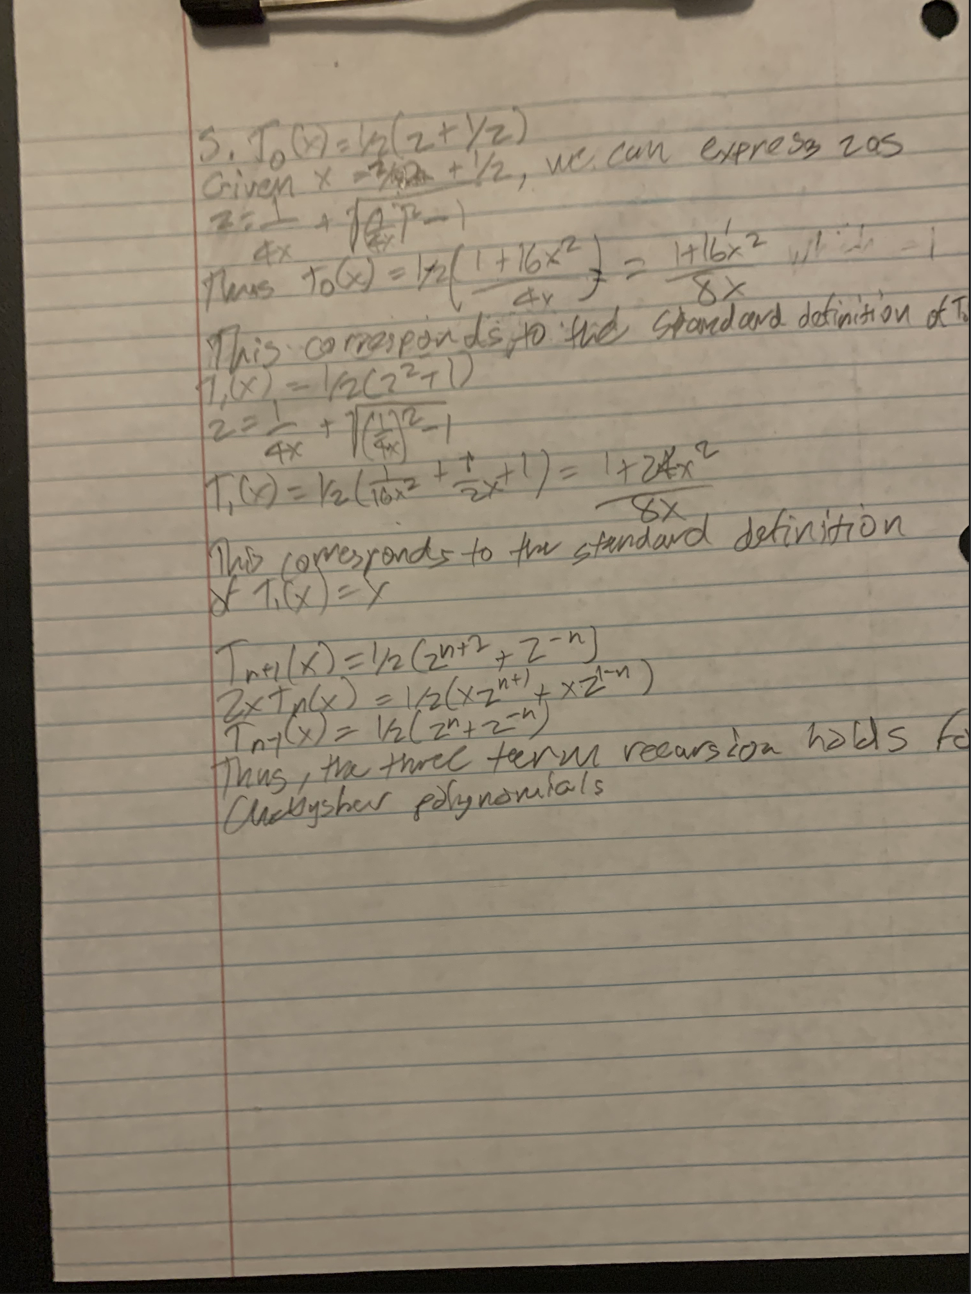 5. T₀(x) = 1/2(z + 1/z)
Given x = + 1/2, we can express z as
z = 1/4x + √((1/4x)² - 1
Thus T₀(x) = 1/2(1+16x²/4x) = 1+16x²/8x = 1
This corresponds to the standard definition of T₀
T₁(x) = 1/2(z²+1)
z = 1/4x + √((1/4x)² - 1
T₁(x) = 1/2(1/16x² + 1/2x + 1) = 1+24x²/8x
This corresponds to the standard definition
of T₁(x) = x
Tn+1(x) = 1/2(zⁿ⁺² + z⁻ⁿ)
2xTn(x) = 1/2(xzⁿ⁺¹ + xz¹⁻ⁿ)
Tn-1(x) = 1/2(zⁿ + z⁻ⁿ)
Thus, the three term recursion holds fo
Chebyshev polynomials